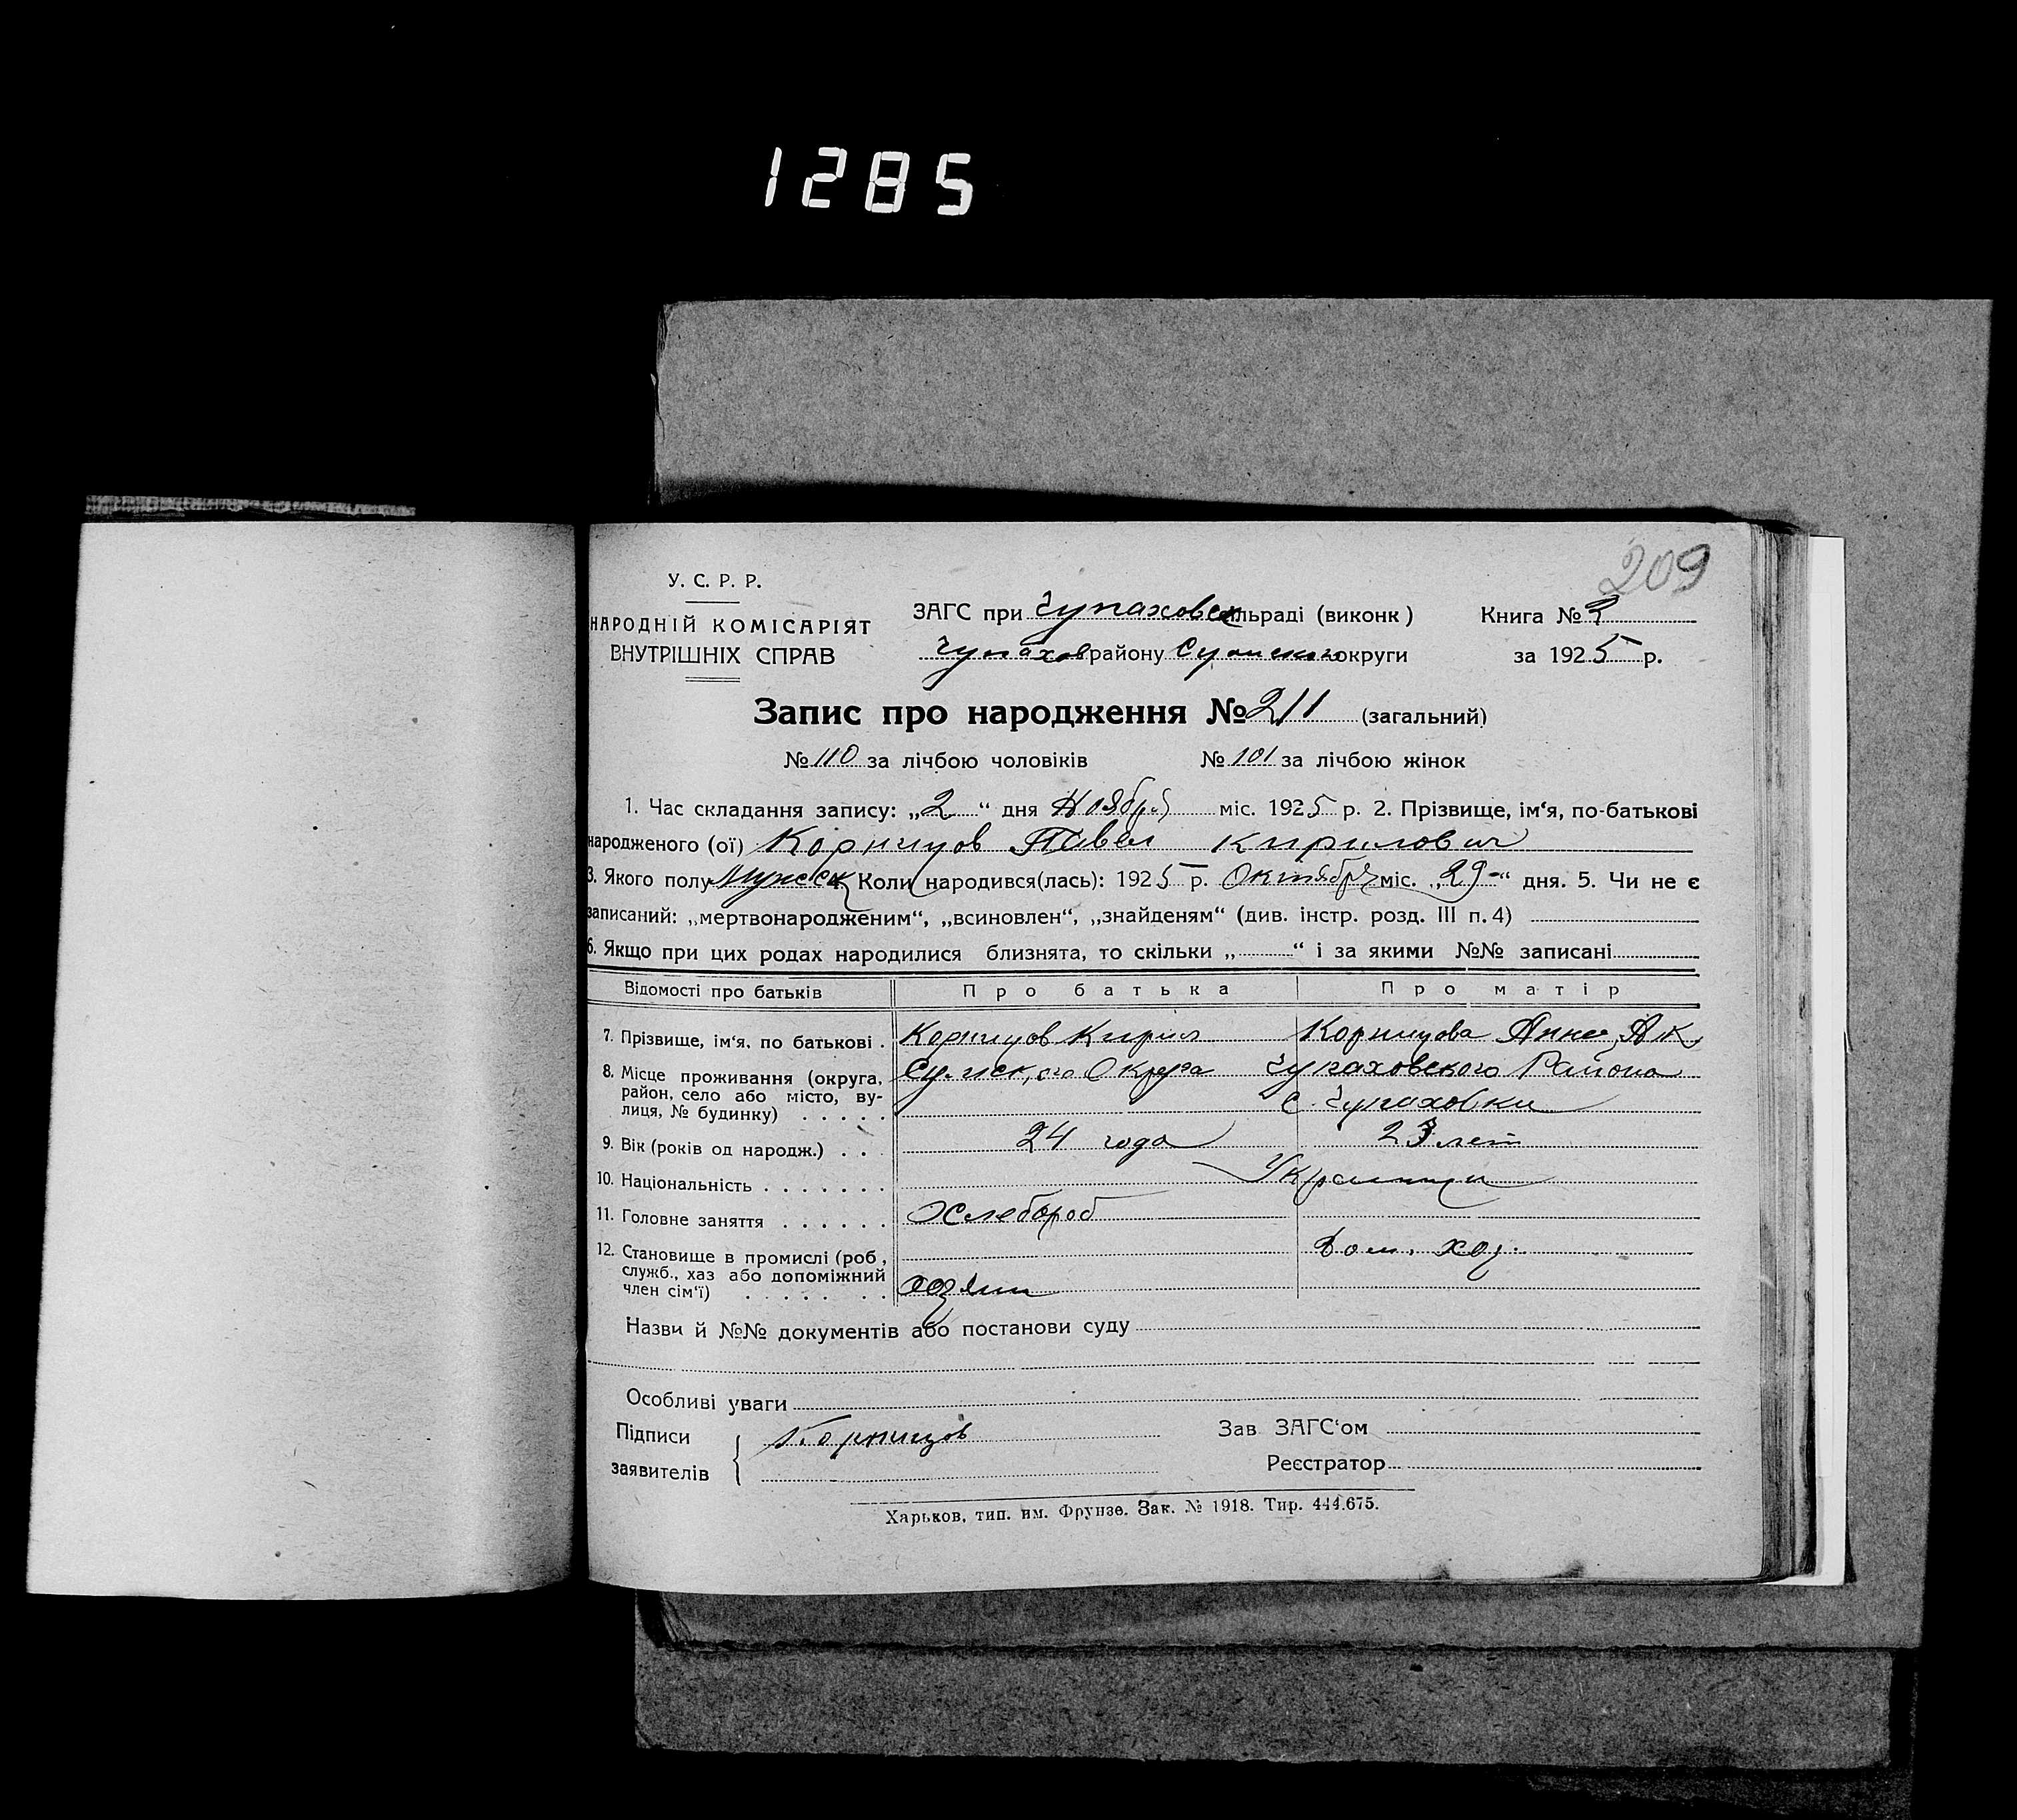 1285
209
У. С. Р. Р.
НАРОДНІЙ КОМІСАРІЯТ
ВНУТРІШНІХ СПРАВ
ЗАГС при Чупаховск сільраді (виконк)
Книга № 3
Чупахов району Сумского округи
за 1925 р.
Запис про народження № 211 (загальний)
№ 110 за лічбою чоловіків № 101 за лічбою жінок
1. Час складання запису: „2“ дня Ноября міс. 1925 р. 2. Прізвище, ім‘я, по-батькові
народженого (ої) Корницов Павел Кирилович
3. Якого полу Мужск Коли народився(лась): 1925 р. Октября міс. „29“ дня. 5. Чи не є
записаний: „мертвонародженим“, „всиновлен“, „знайденям“ (див. інстр. розд. III п. 4)
6. Якщо при цих родах народилися близнята, то скільки „ “ і за якими №№ записані
Відомості про батьків Про батька Про матір
7. Прізвище, ім‘я, по батькові . Корницов Кирил Корницова Анна Ак
8. Місце проживання (округа, район, село або місто, вулиця, № будинку) Сумского Округа Чупаховского Района
с. Чупаховки
9. Вік (років од народж.) . . . 24 года 23 лет
10. Національність . . . . . . . Украинцы
11. Головне заняття . . . . . . Хлебороб
12. Становище в промислі (роб., служб., хаз або допоміжний член сім‘ї) хозяин Дом. хоз.
Назви й №№ документів або постанови суду
Особливі уваги
Підписи
заявителів
Корницов
Зав ЗАГС‘ом
Реєстратор
Харьков, тип. им. Фрунзе. Зак. № 1918. Тир. 444.675.